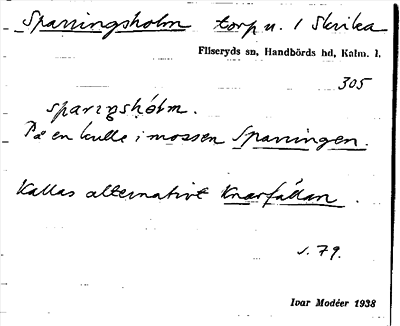 Sparringsholm torp u. 1 Skrika
Fliseryds sn, Handbörds hd, Kalm. l.
305
sparıŋshólm.
På en kulle i mossen Sparringen.
Kallas alternativt Knarfållan.
s. 79.
Ivar Modéer 1938